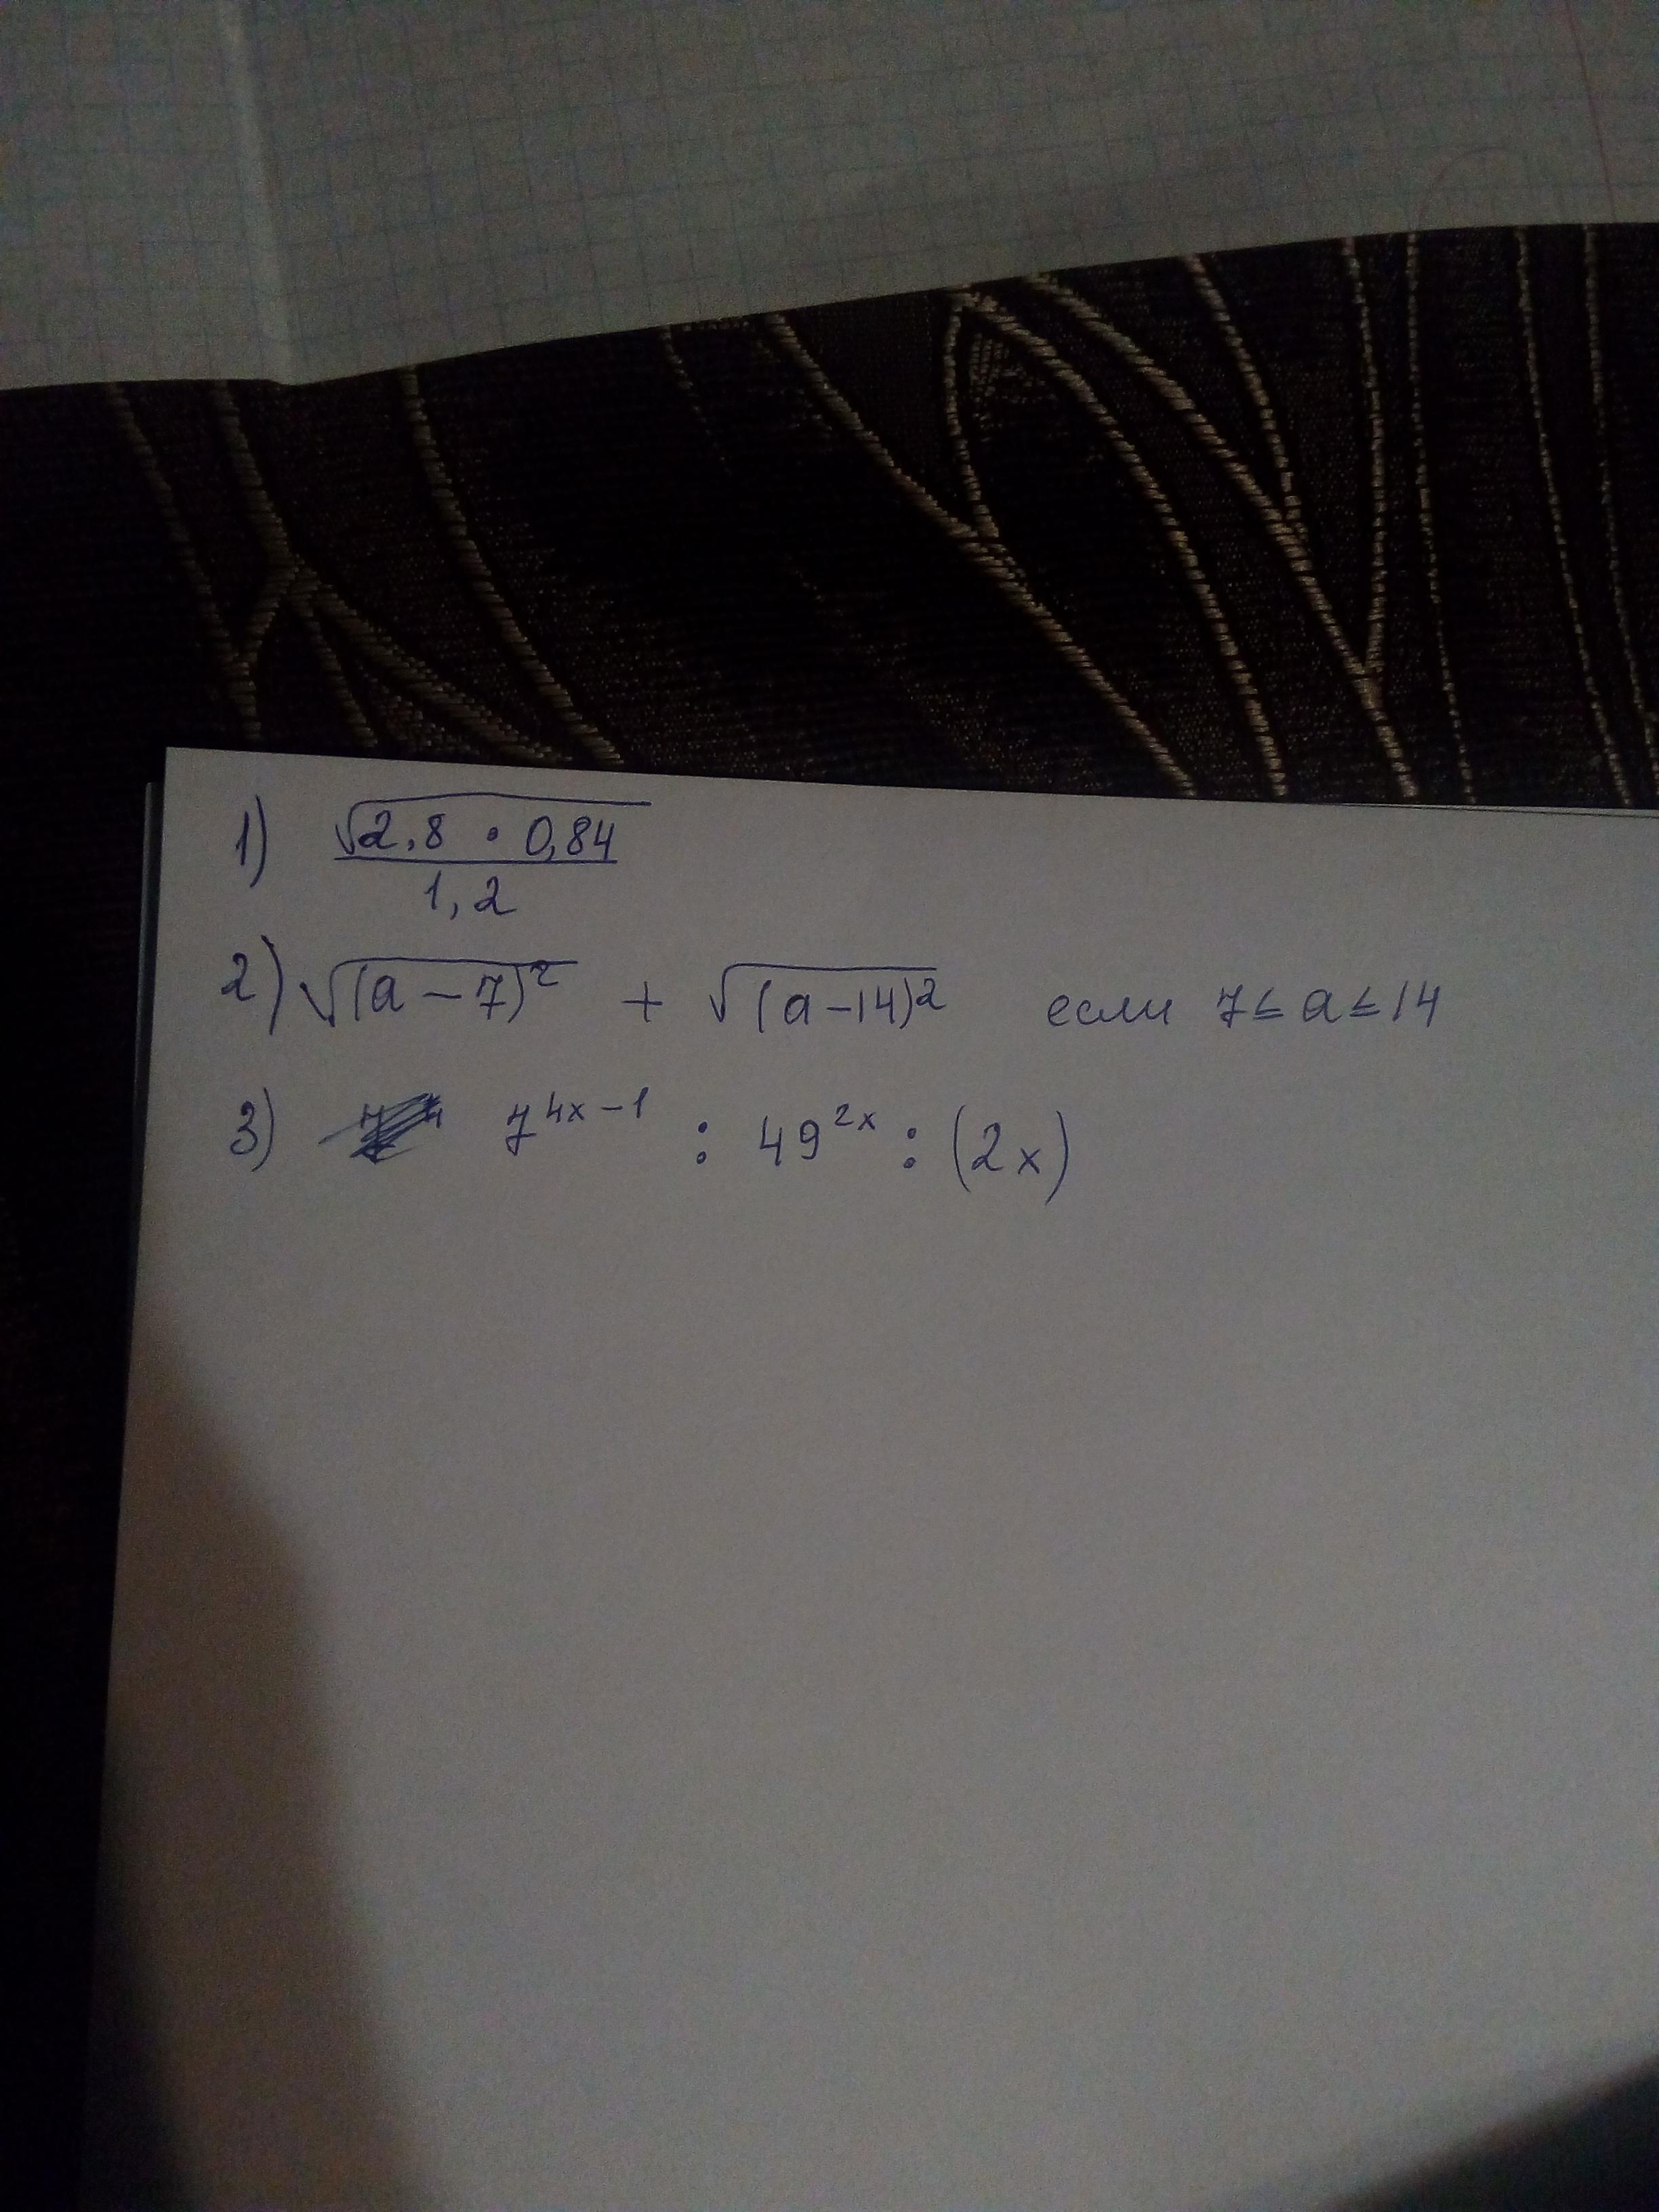 1) √2,8 · 0,84
1,2
2) √(a - 7)² + √(a - 14)² если 7 ≤ a ≤ 14
3) 7^{4x - 1} : 49^{2x} : (2x)